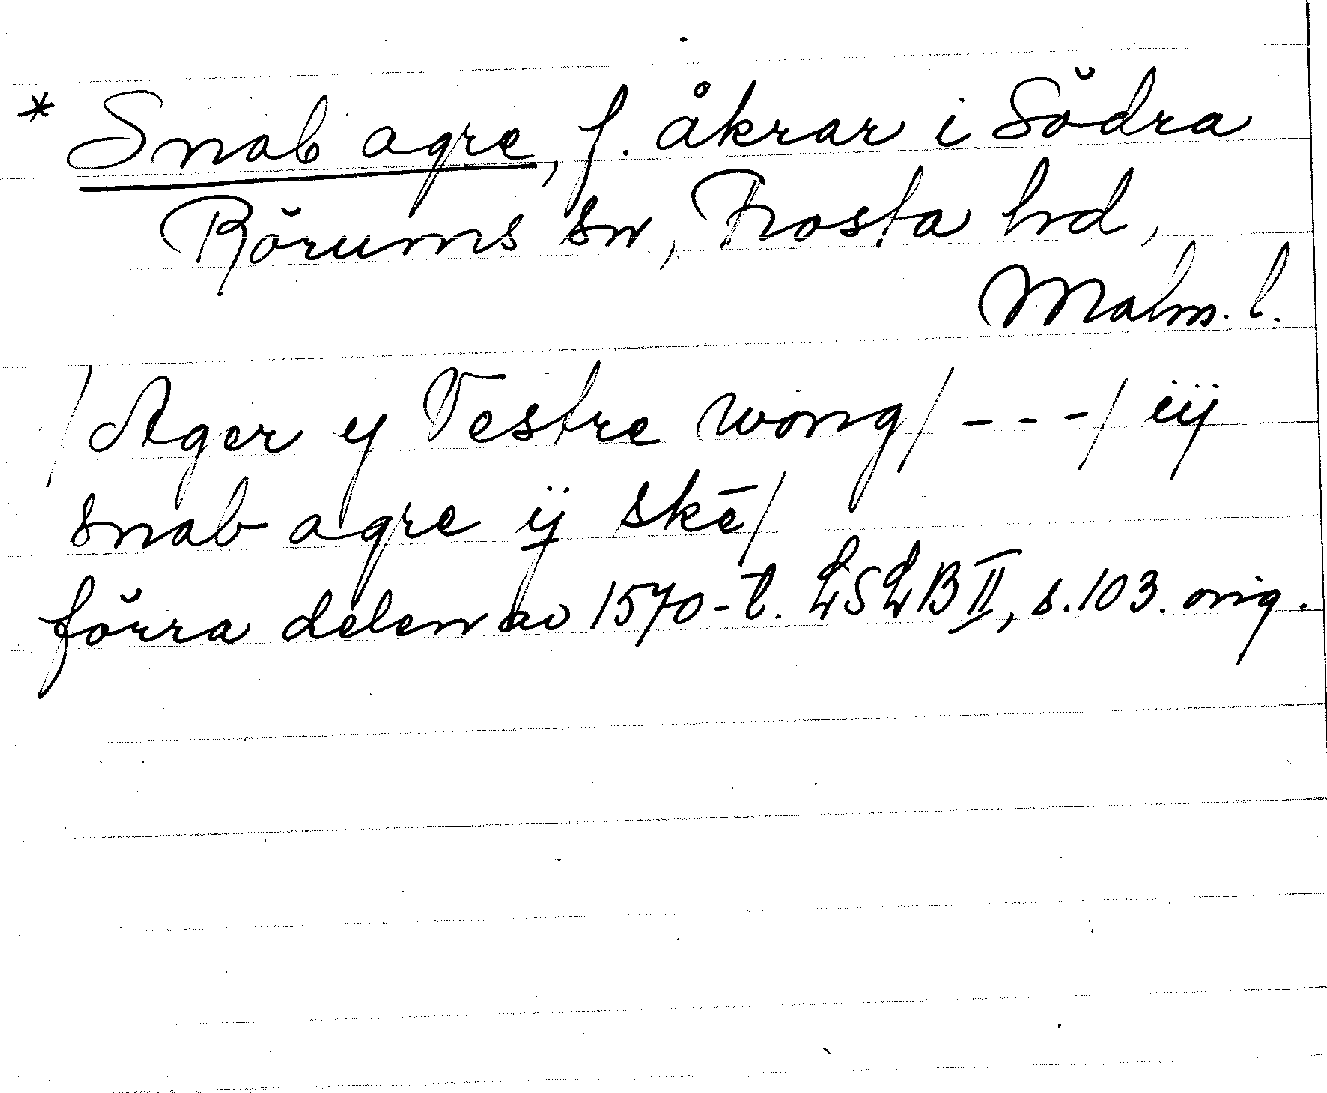 * Snab agre, f. åkrar i Södra
Rörums sn, Frosta hd,
Malm. l.
/Ager y Vestre wong/ - - - / iij
snab agre ij skē/
förra delen av 1570-t. LSLB II, s. 103. orig.